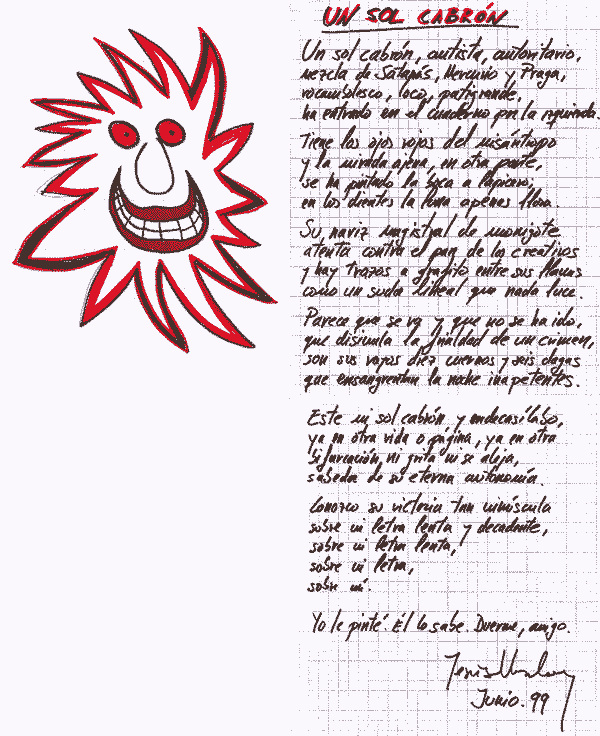 UN SOL CABRÓN
Un sol cabrón, autista, autoritario,
mezcla de Satanás, Mercurio y Praga,
rocambolesco, loco, patigrande,
ha entrado en el cuaderno por la izquierda.
Tiene los ojos rojos del misántropo
y la mirada ajena, en otra parte,
se ha pintado la boca a lapicero,
en los dientes la luna apenas llora.
Su nariz magistral de monigote
atenta contra el pan de los creativos
y hay trazos a grafito entre sus llamas
como un suda lineal que nada luce.
Parece que se va y que no se ha ido,
que disimula la frialdad de un crimen,
son sus rayos diez cuernos y seis dagas
que ensangrentan la noche inapetentes.
Este mi sol cabrón y endecasílabo,
ya en otra vida o página, ya en otra
bifurcación, ni grita ni se aleja,
sabedor de su eterna autonomía.
Conozco su victoria tan minúscula
sobre mi letra lenta y decadente,
sobre mi letra lenta,
sobre mi letra,
sobre mí.
Yo le pinté. Él lo sabe. Duerme, amigo.
Junio. 99